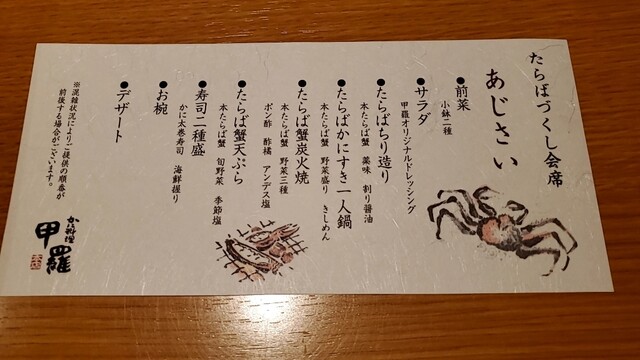 たらばづくし会席
あじさい
●前菜
小鉢二種
●サラダ
甲羅オリジナルドレッシング
●たらばちり造り
本たらば蟹 薬味 割り醤油
●たらばかにすき一人鍋
本たらば蟹 野菜盛り きしめん
●たらば蟹炭火焼
本たらば蟹 野菜三種
ポン酢 酢橘 アンデス塩
●たらば蟹天ぷら
本たらば蟹 旬野菜 季節塩
●寿司二種盛
かに太巻寿司 海鮮握り
●お椀
●デザート
※混雑状況によりご提供の順番が
前後する場合がございます。
かに料理
甲羅